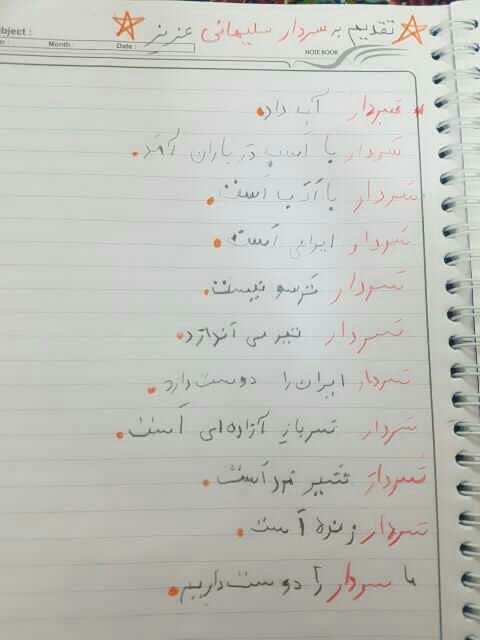 تقدیم به سردار سلیمانی عزیز
Subject :
Month :
Date :
NOTE BOOK
سردار آب داد.
سردار با اسب در باران آمد.
سردار با ادب است.
سردار ایرانی است.
سردار ترسو نیست.
سردار تیر می اندازد.
سردار ایران را دوست دارد.
سردار سرباز آزاده ای است.
سردار شیر مرد است.
سردار زنده است.
ما سردار را دوست داریم.